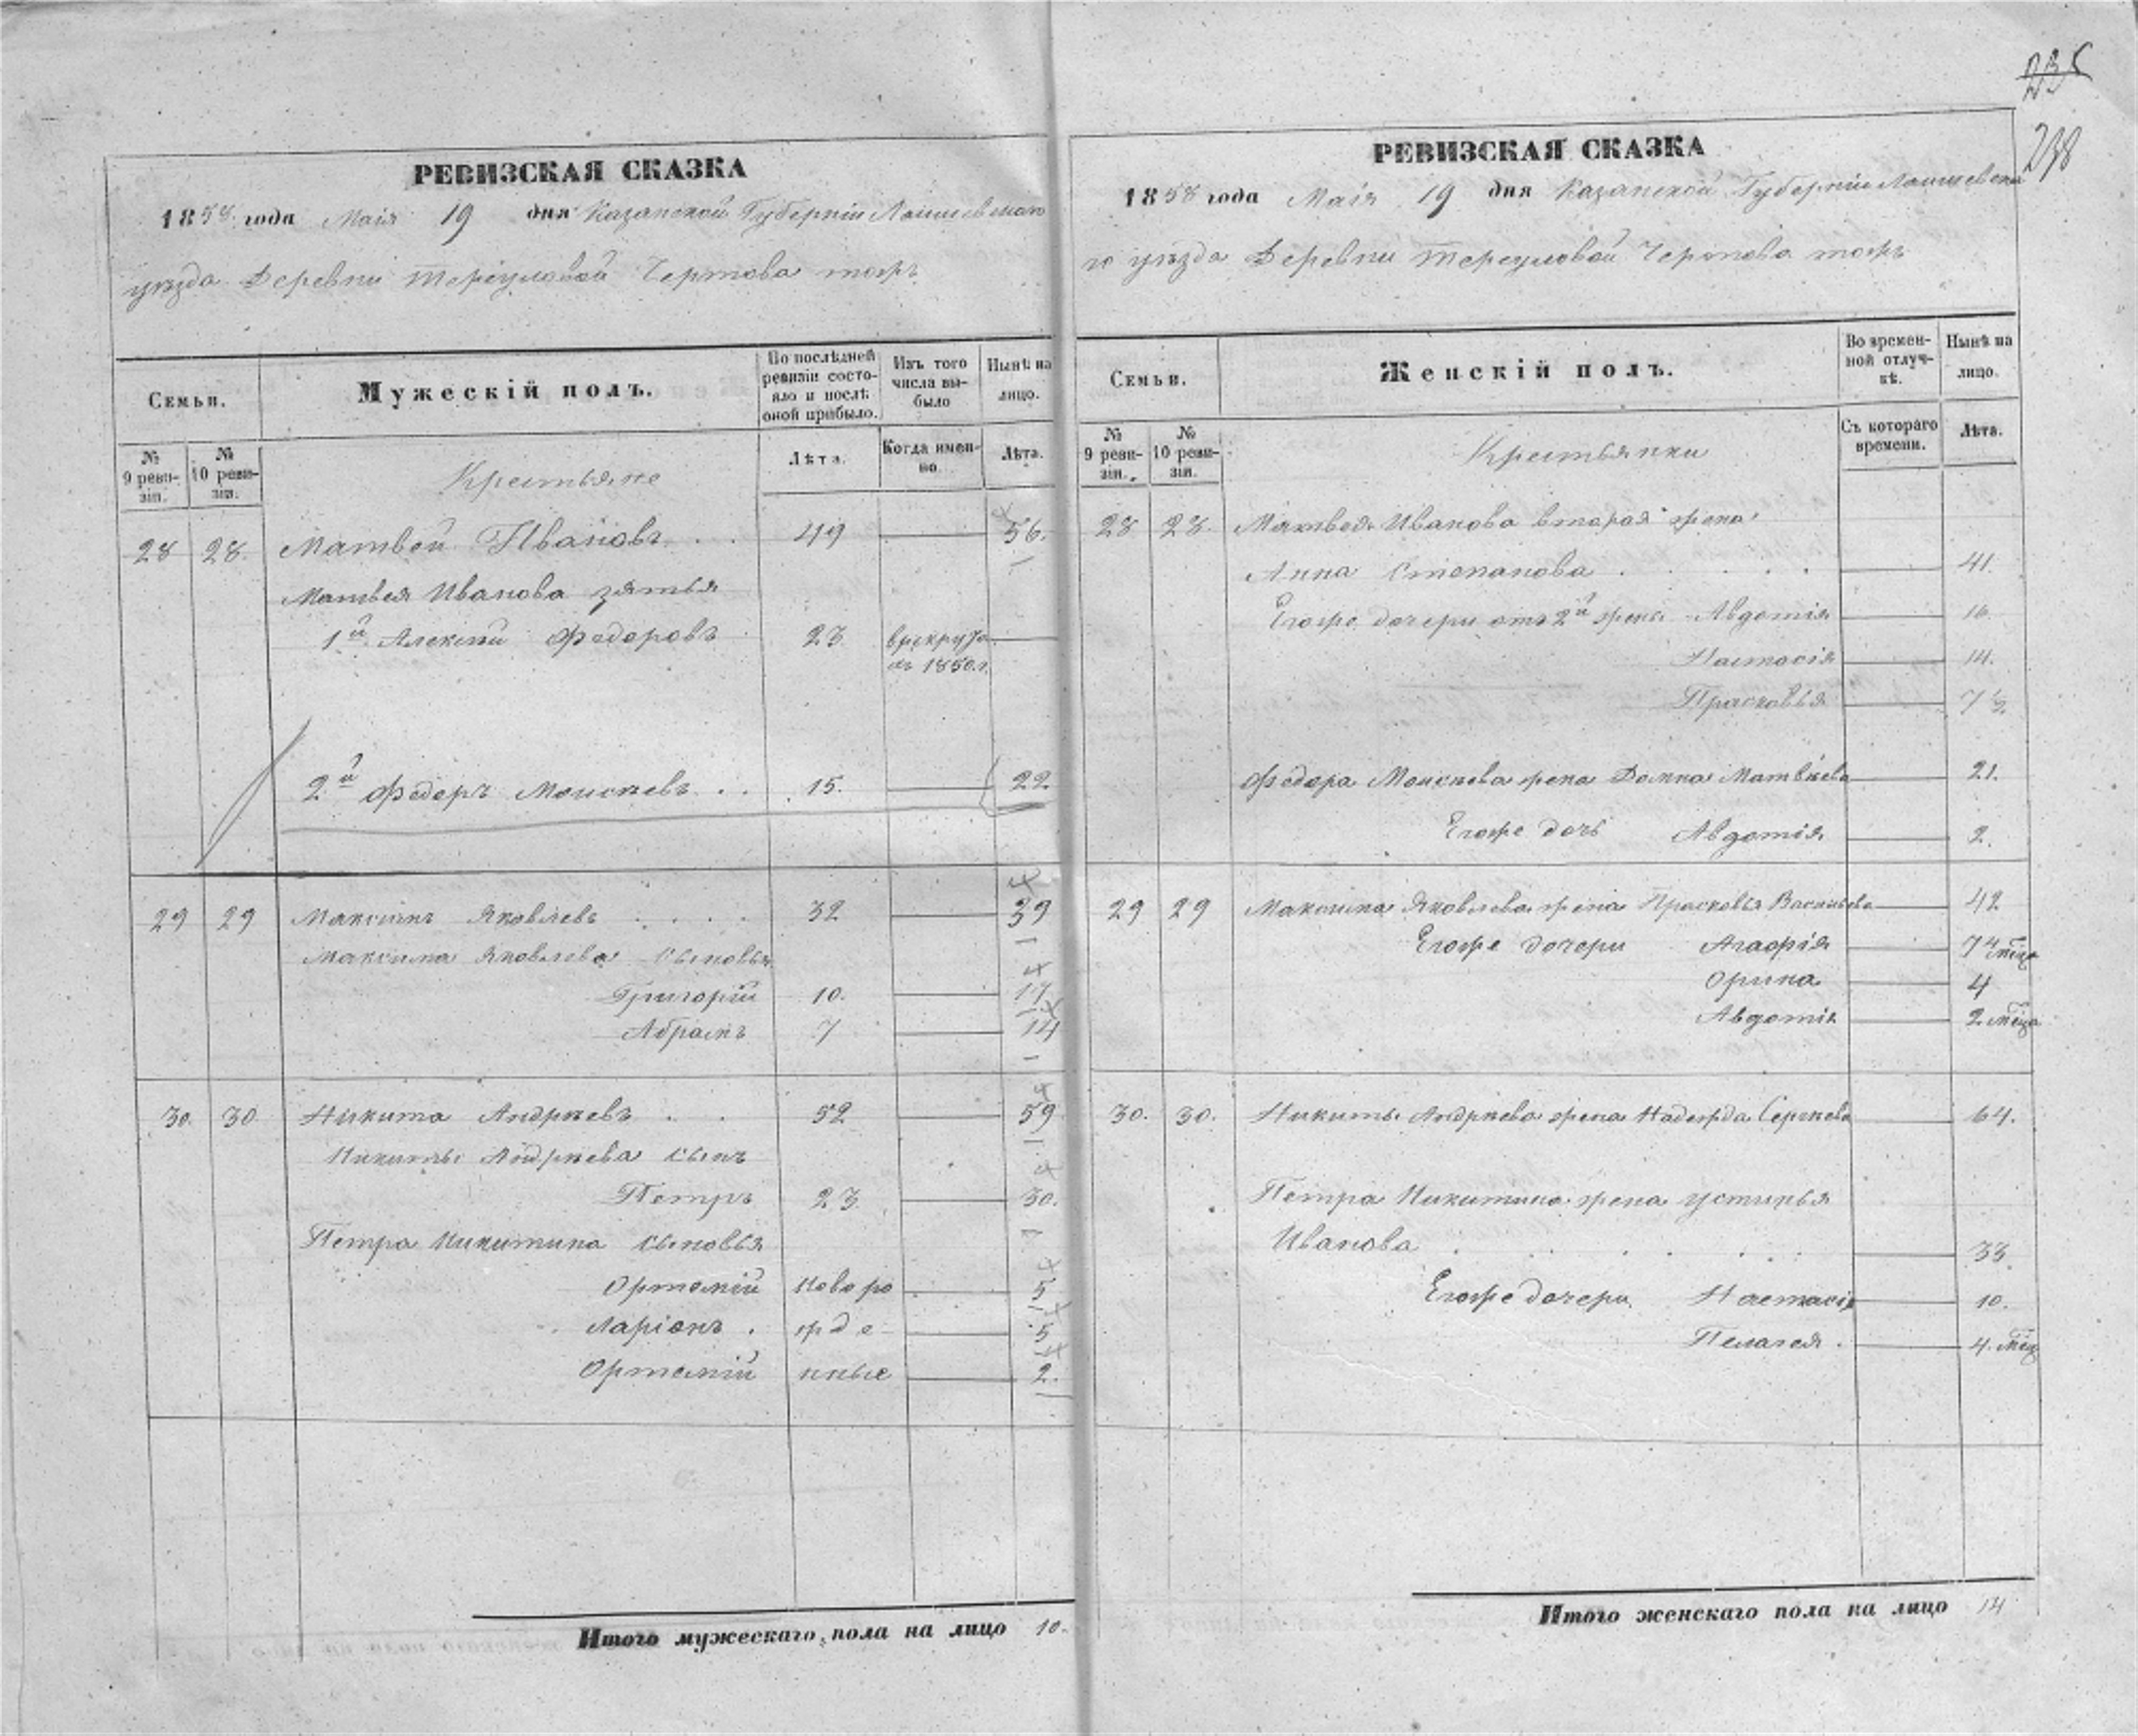 235
238
РЕВИЗСКАЯ СКАЗКА
1858 года Маія 19 дня Казанской Губерніи Лаишевскаго
уѣзда Деревни Тереуловой Чертова тожъ
Семьи.
Мужескій полъ.
По послѣдней ревизіи состояло и послѣ оной прибыло.
Изъ того числа выбыло
Нынѣ на лицо.
№ 9 ревизіи.
№ 10 ревизіи.
Крестьяне
Лѣта.
Когда именно.
Лѣта.
28 28. Матвей Ивановъ . . 49 56.
Матвея Иванова зятья
1й Алексѣй Федоровъ 23 в рекрута
въ 1850 г.
2й Федоръ Моисѣевъ . . 15. 22
29 29 Максимъ Яковлевъ . . . . 32 39
Максима Яковлева сыновья
Григорій 10. 17
Абрамъ 7 14
30. 30 Никита Андрѣевъ . . 52 59
Никиты Андрѣева сынъ
Петръ 23. 30.
Петра Никитина сыновья
Ортемій новоро 5
Ларіонъ . жде- 5
Ортемій нные 2.
Итого мужескаго пола на лицо 10.
РЕВИЗСКАЯ СКАЗКА
1858 года Маія 19 дня Казанской Губерніи Лаишевска
го уѣзда Деревни Тереуловой Чертова тожъ
Семьи.
Женскій полъ.
Во временной отлучкѣ.
Нынѣ на лицо.
№ 9 ревизіи.
№ 10 ревизіи.
Крестьянки
Съ котораго времени.
Лѣта.
28 28. Матвея Иванова вторая жена
Анна Степанова . . . . . 41.
Егоже дочери отъ 2й жены Авдотія 16.
Настасія 14.
Прасковья 7 ½
Федора Моисѣева жена Домна Матвѣева 21.
Егоже дочь Авдотія 2.
29 29 Максима Яковлева жена Прасковья Васильева 42
Егоже дочери Агафія 7
Орина 4
Авдотія 2 мѣца
30. 30. Никиты Андрѣева жена Надежда Сергѣева 64.
Петра Никитина жена Устинья
Иванова . . . . . 33.
Егоже дочери Настасія 10.
Пелагея . 4. мѣц
Итого женскаго пола на лицо 14